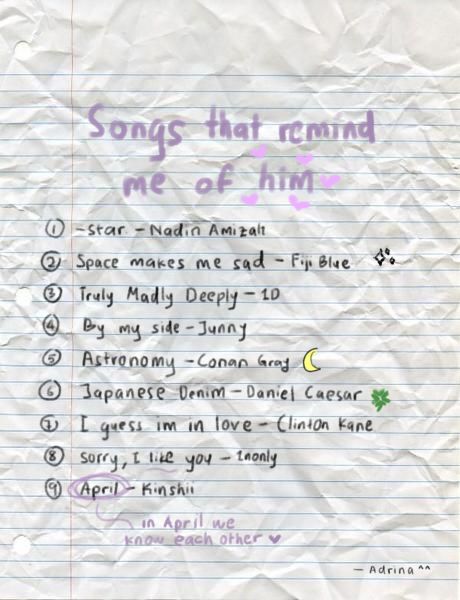 Songs that remind
me of him
① -Star. - Nadin Amizah
② Space makes me sad - Fiji Blue
③ Truly Madly Deeply - 1D
④ By my side - Junny
⑤ Astronomy - Conan Gray
⑥ Japanese Denim - Daniel Caesar
⑦ I guess im in love - Clinton Kane
⑧ sorry, I like you - 1nonly
⑨ April - Kinshii
in April we
know each other
- Adrina ^^